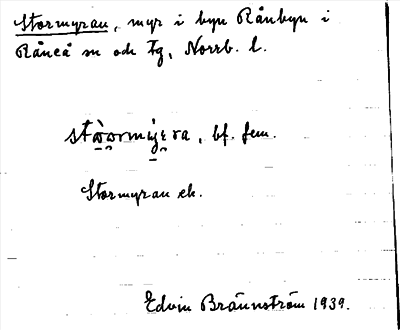 Stormyran, myr i byn Rånbyn i
Råneå sn och tg, Norrb. l.
bf. fem.
Stormyran ek.
Edvin Brännström 1939.